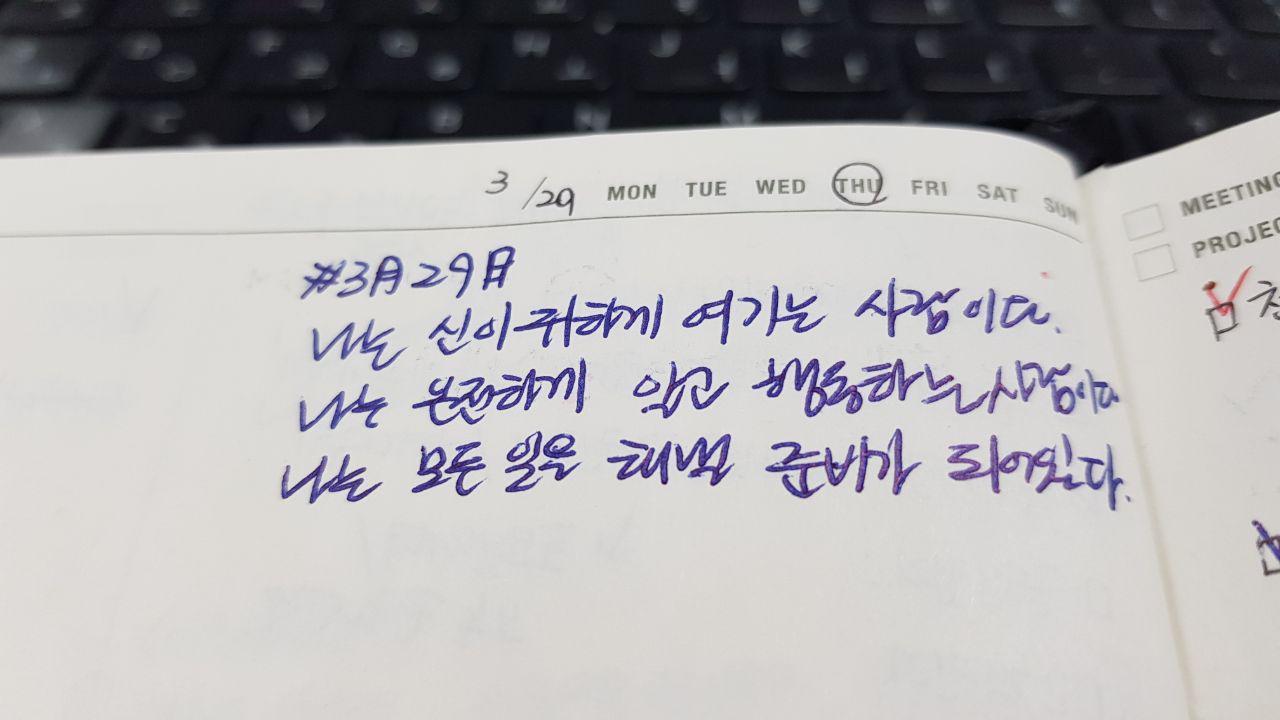 3/29 MON TUE WED THU FRI SAT SUN
MEETING
PROJEC
#3月29日
나는 신이 귀하게 여기는 사람이다.
나는 온전하게 알고 행동하는 사람이다
나는 모든 일을 해낼 준비가 되어있다.